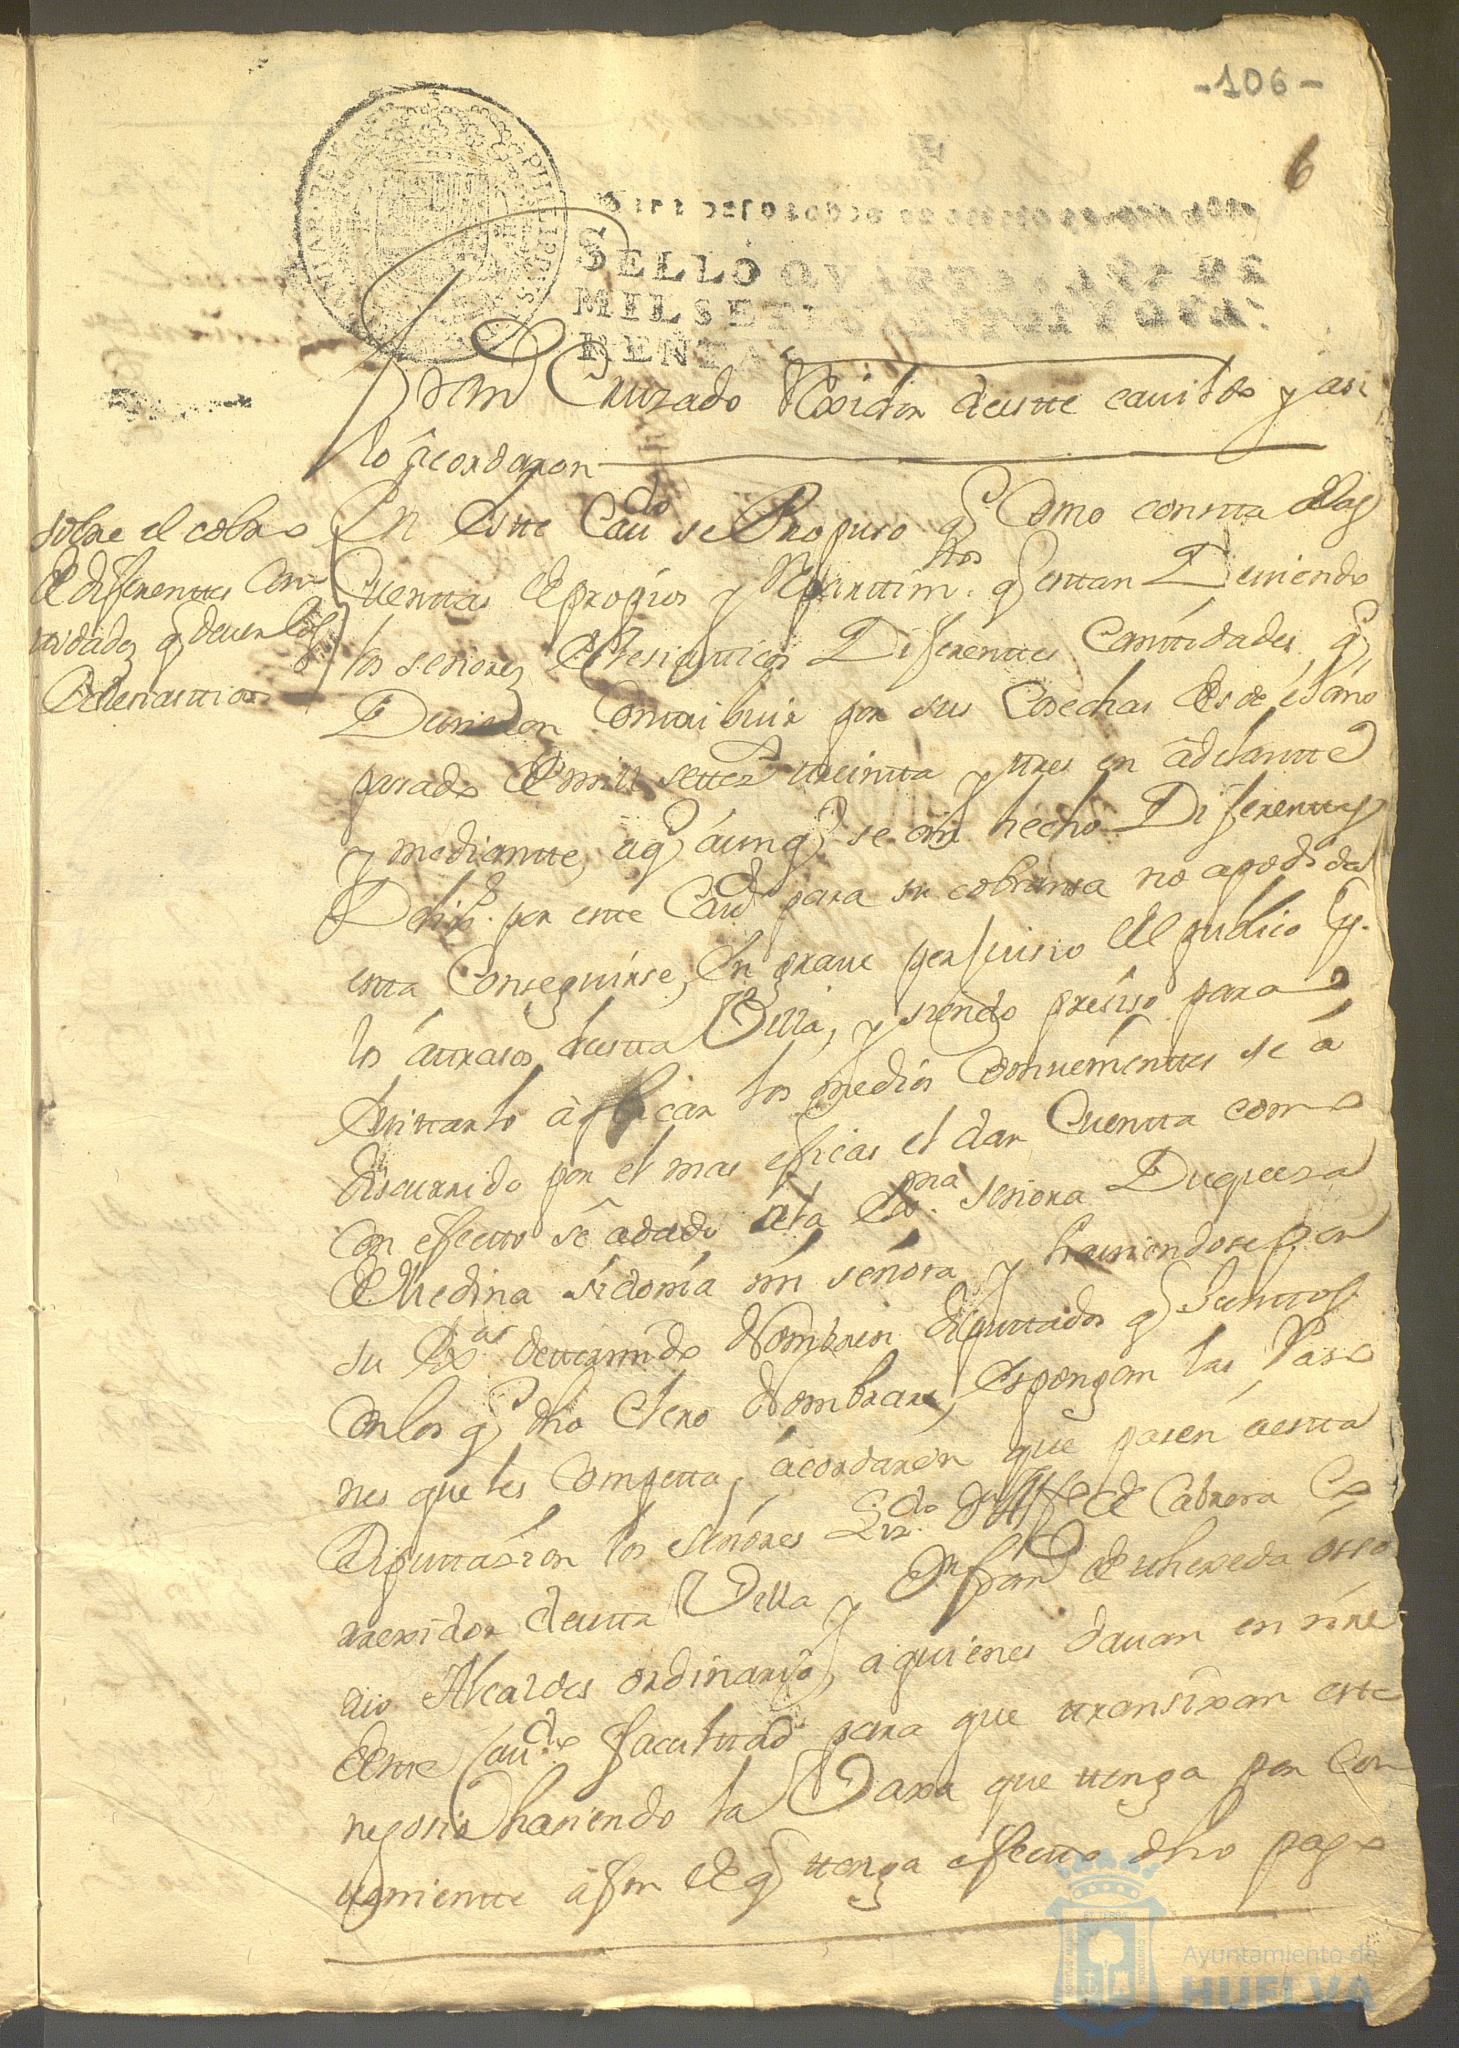 -106-
6
SELLO QVARTO
MIL SETECIENTOS Y
RENTA
Cruzado Rexidor deeste cauildo y asi
lo acordaron
sobre el cobro
de diferenttes can
tidades q deuen los
Eclesiasticos
En Estte Cau.do se Propuso q Como constta delas
Cuenttas de propios y Reparttim.ttos q esttan Deuiendo
los señores Eclesiasticos Diferenttes Canttidades q
Deuieron Conttribuir por sus Cosechas desde el año
pasado de mill settez.s treintta y ttres en adelantte
y mediantte, aq aunq se an hecho Diferenttes
Delig.s por estte Cau.do para su cobransa no apodido
estta Conseguirse, En graue perjuisio del publico y
los attrasos desta Villa, y siendo presiso para
Euittarlo aplicar los medios Conuenienttes se a
discurrido por el mas eficas el dar Cuentta como
con efectto se adado ala Ex.ma señora Duquesa
de Medina sidonia mi señora y hauiendose por
su Ex.a dettermindo Nombren diputtados q Junttos
con los q dho Clero Nombrare, espongan las Raso
nes que les Competta, acordaron que pasen aestta
Diputtasion los señores Liz.do Dn Alfo de Cabrera Co
rrexidor destta Villa y Dn fran.co de thexeda osso
rio Alcaldes ordinarios, a quienes dauan en nre
destte Cau.do facultad para que ttransixan estte
negosio hasiendo la Vaxa que ttenga por Con
uenientte a fin de q ttenga efectto dho pago
Ayuntamiento de
HUELVA